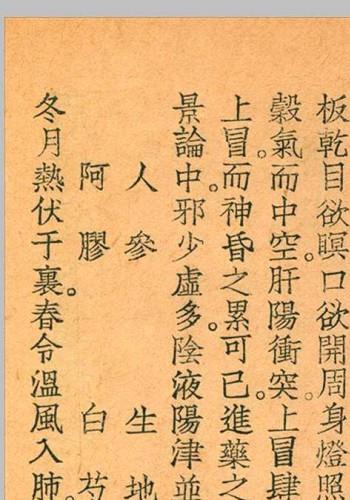 板乾目欲瞑口欲開周身燈照
穀氣而中空。肝陽衝突。上冒肆
上冒。而神昏之累可已。進藥之
景論中。邪少虛多。陰液陽津並
人參 生地
阿膠 白芍
冬月熱伏于裏。春令溫風入肺。